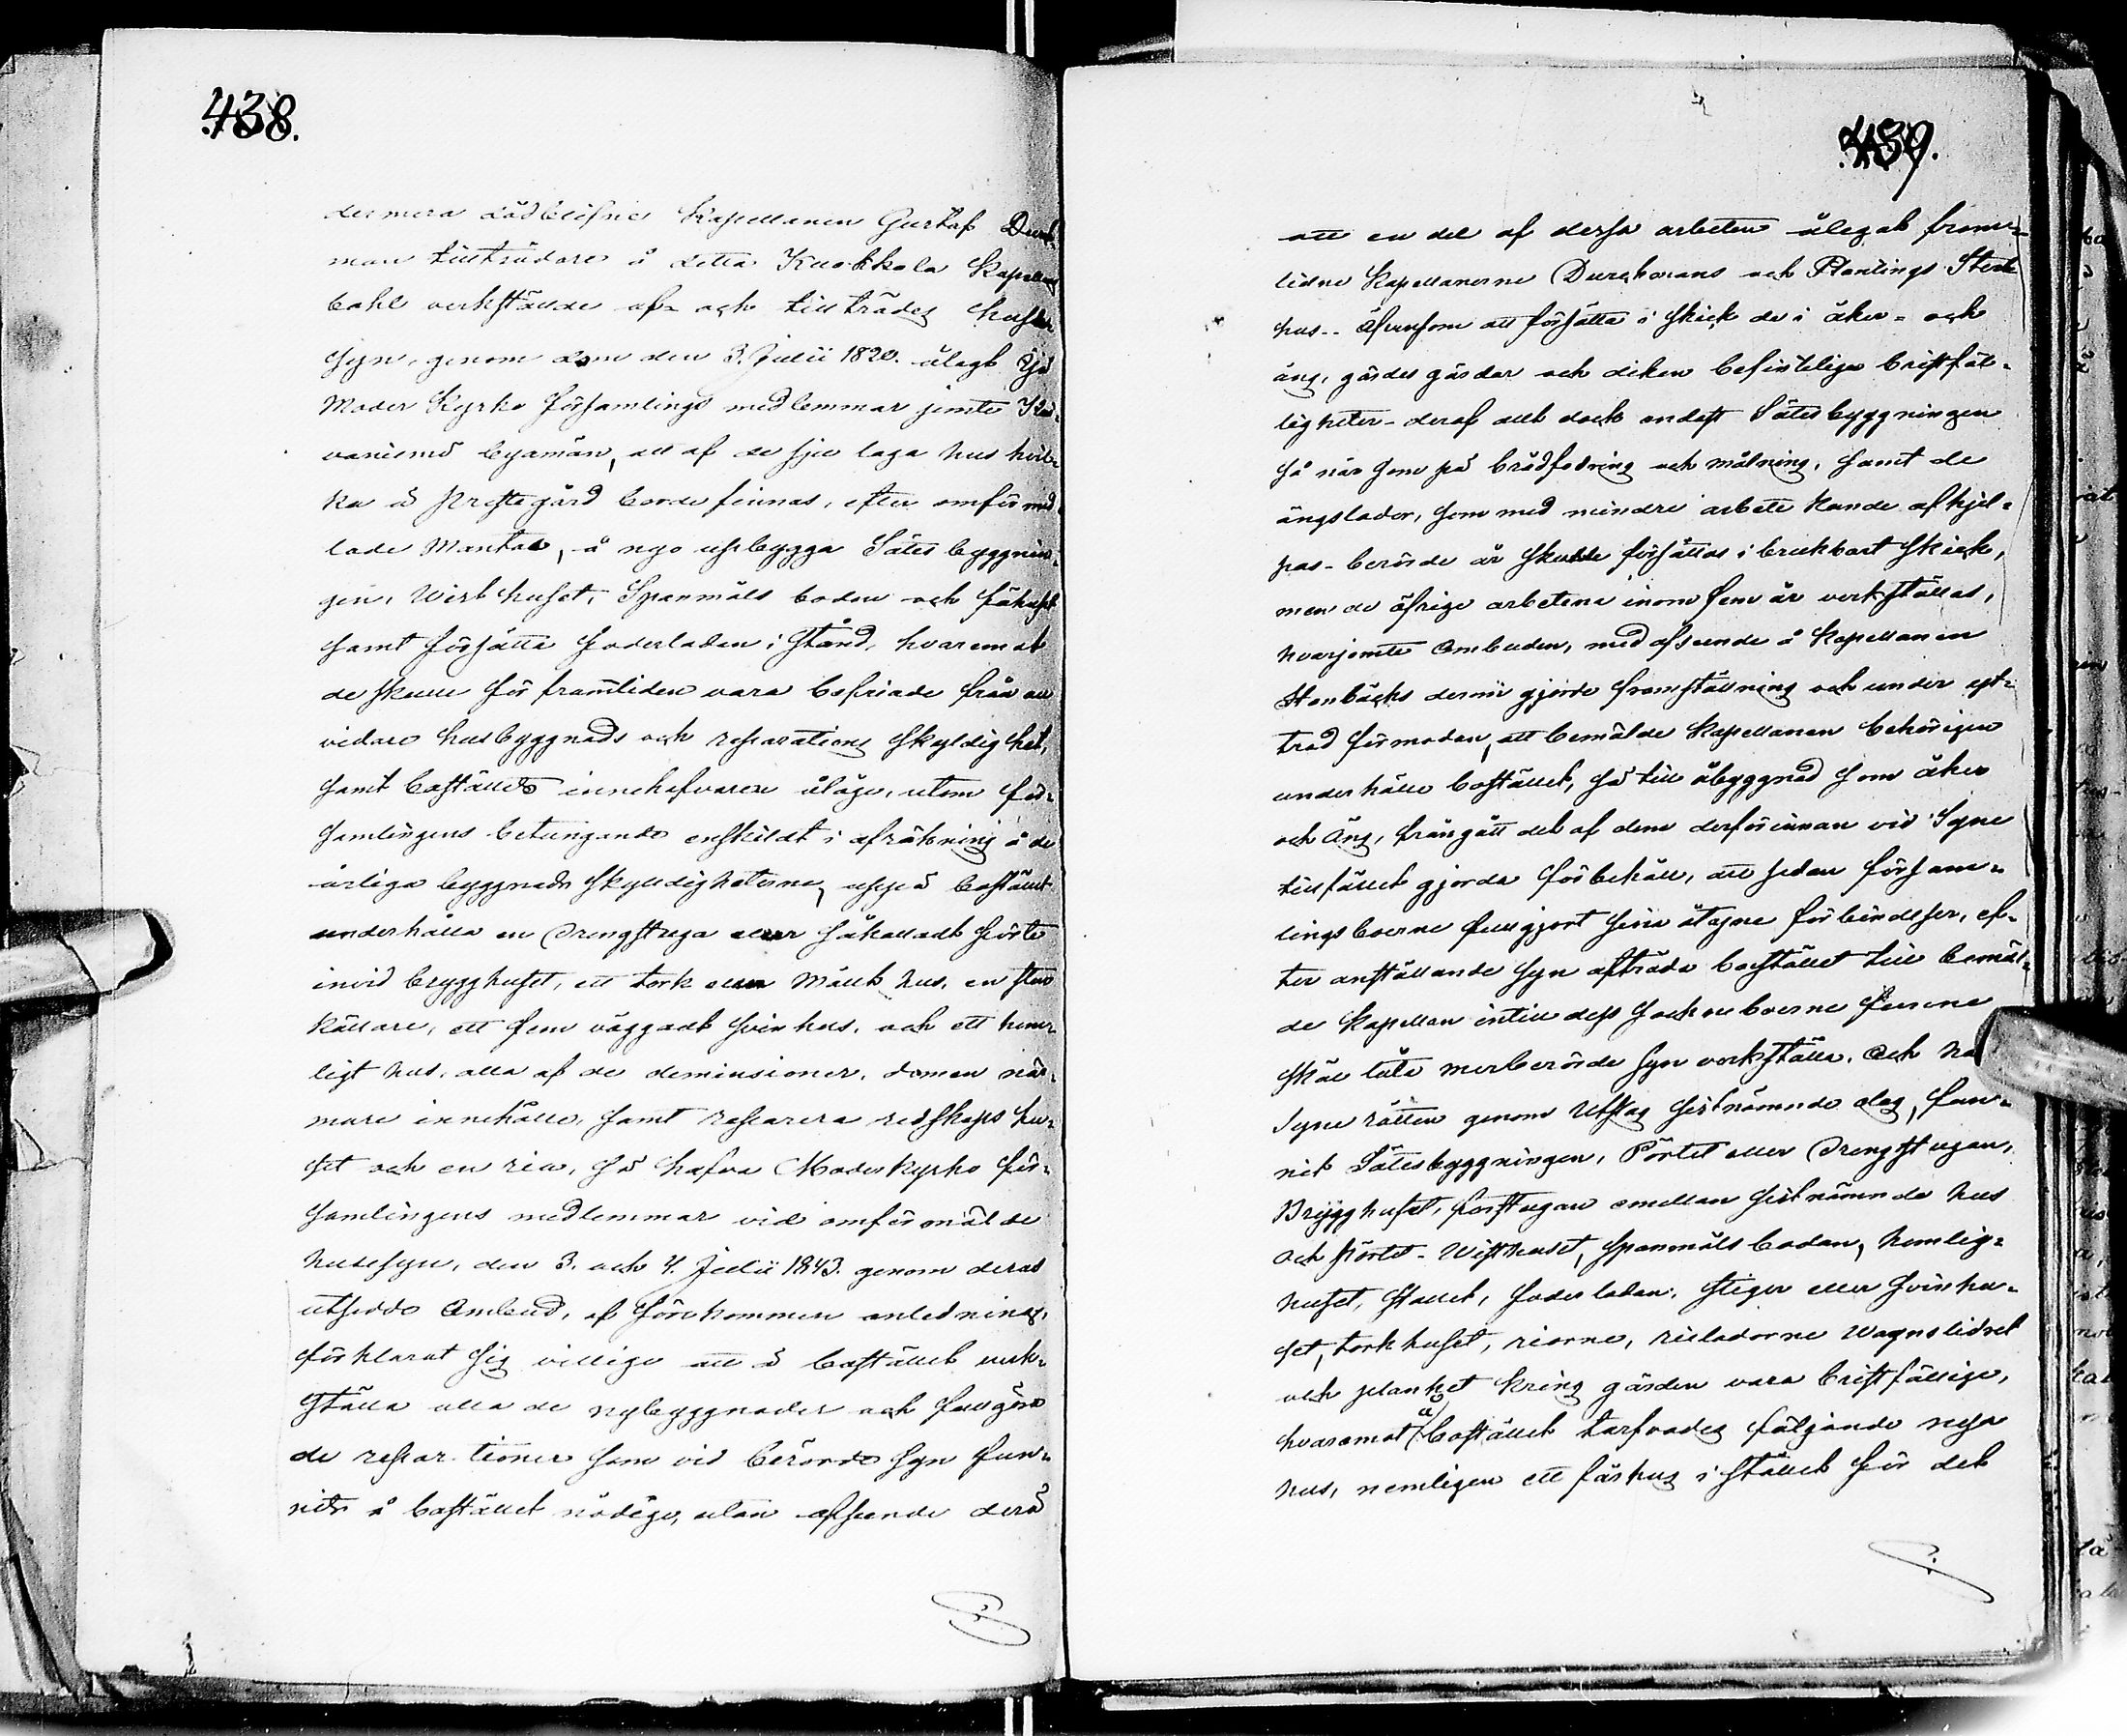 438.
dermera dödblifne Kapellanen Gustaf Durch
man tillträdare å detta Kuokkola Kapellans
bohl verkstälde af- och tillträdes huse
syn, genom dom den 3. Julii 1820. ålagt
Moder Kyrko församlings medlemmar jemte
byamän, att af de sju laga hus hvil-
ka å prestegård borde finnas, efter omförmä
lade Mantal, å nyo uppbygga Sätesbyggnin-
gen, Visthuset, Spanmåls boden och fähuset
samt försätta foderladan i stånd, hvaremot
de skulle för framtiden vara befriade från all
vidare husbyggnads och reparations skyldighet,
samt boställets innehafvaren åläge, utom för-
samlingens betungande enskildt i afräkning å de
årliga byggnads skyldigheterna, uppå bostället
underhålla en Drengstuga eller såkalladt pörte
invid brygghuset, ett tork eller Mält hus, en sten
källare, ett fem väggadt svinhus, och ett hem-
ligt hus, alla af de deminsioner, domen när-
mare innehålle, samt reparera redskaps hu-
set och en ria, så hafva Moderkyrko för-
samlingens medlemmar vid omförmälde
husesyn, den 3. och 4. Julii 1843. genom deras
utsedde Ombud, af förekommen anledning,
förklarat sig villige att å bostället verk-
ställa alla de nybyggnader och fullgöra
de repar-tioner som vid berörde syn fun-
nits å bostället nödige, utan afseende derå
439.
att en del af dessa arbeten ålegat fram-
lidne Kapellanerne Durchmans och Plantings Sterb
hus- äfvensom att försätta i skick de i åker- och
äng, gärdes gårdar och diken befintelige bristfäl-
ligheter- deraf allt dock endast Sätesbyggningen
så när som på brädfodring och målning, samt de
ängslador, som med mindre arbete kunde afhjel-
pas- berörde år skulle försättas i brukbart skick,
men de öfrige arbetena inom fem år verkställas,
hvarjemte Ombuden, med afseende å Kapellanen
Stenbäcks derom gjorde framställning och under ytt-
rad förmodan, att bemälde Kapellanen behörigen
underhålle bostället, så till åbyggnad som åker
och Äng, frångått det af dem derförinnan vid Syne
tillfället gjorde förbehåll, att sedan försam-
lingsboerne fullgjort sina åtagne förbindelser, ef-
ter anställande syn afträda bostället till bemäl-
de Kapellan intill dess sockneboerne funne
skäl låta merberörde syn verkställa. Och ha
Syne rätten genom Utslag sistnämnde dag, fun-
nit Sätesbyggningen, Pörtet eller Drengstugan,
Brygghuset, förstugan emellan sistnämnde hus
och pörtet- Visthuset, Spanmåls bodan, hemlig-
huset, stallet, foderladan, stigor eller svinhu-
set, torkhuset, riorne, rieladorne Vagnslidret
och planket kring gården vara bristfällige,
hvaremot å bostället tarfvades följande nya
hus, nemligen ett fårhus i stället för det